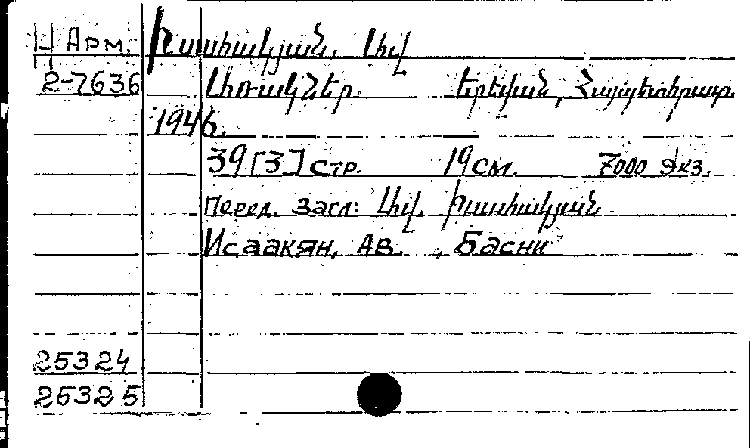 Ц Арм. Իսահակյան, Ավ.
2-7636 Առակներ. Երևան, Հայպետհրատ.
1946.
39 [3] стр. 19 см. 7000 экз.
Перед. загл: Ավ. Իսահակյան
Исаакян, Ав. , Басни
25324
25325